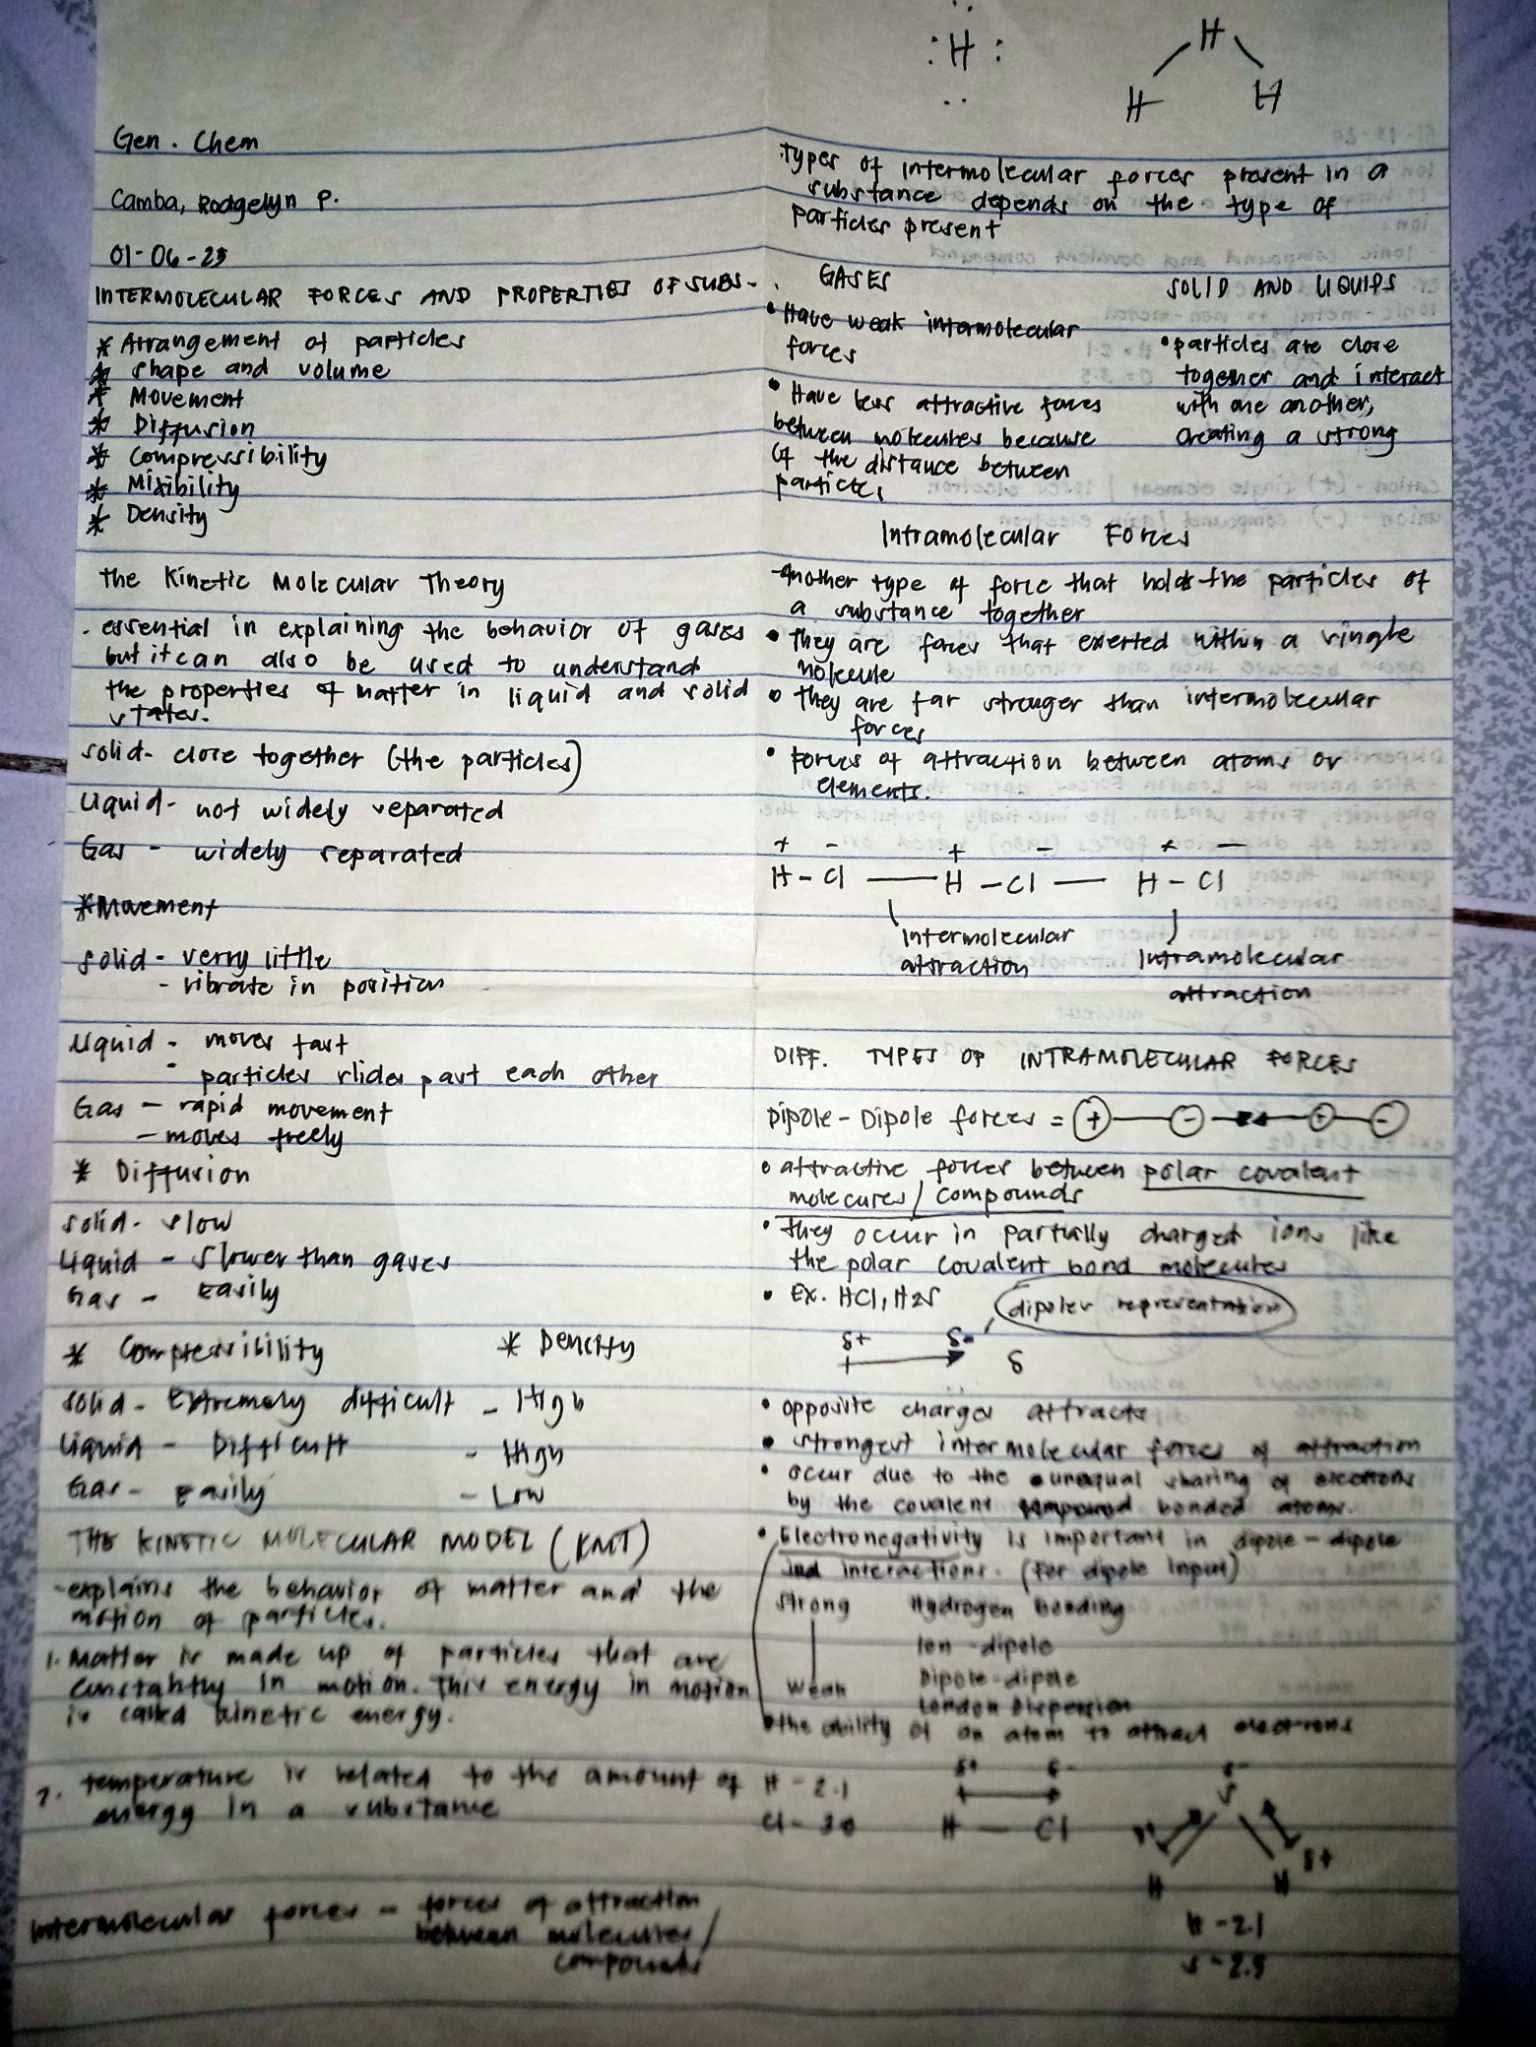 Gen. Chem
Camba, Rodgelyn P.
01-06-23
INTERMOLECULAR FORCES AND PROPERTIES OF SUBS-
* Arrangement of particles
* shape and volume
* Movement
* Diffusion
* Compressibility
* Mixibility
* Density
The Kinetic Molecular Theory
- essential in explaining the behavior of gases
but it can also be used to understand
the properties of matter in liquid and solid
states.
solid- close together (the particles)
Liquid- not widely separated
Gas - widely separated
*Movement
solid - verry little
- vibrate in position
Liquid - moves fast
- particles slides past each other
Gas - rapid movement
- moves freely
* Diffusion
solid- slow
Liquid - slower than gases
Gas - Easily
* Compressibility * Dencity
solid - Extremely difficult - High
Liquid - Difficult - High
Gas - Easily - Low
THE KINETIC MOLECULAR MODEL (KMT)
-explains the behavior of matter and the
motion of particles.
1. Matter is made up of particles that are
constantly in motion. This energy in motion
is called kinetic energy.
2. temperature is related to the amount of
energy in a substance
Intermolecular forces - forces of attraction
between molecules/
compounds
H
H
H H
Types of intermolecular forces present in a
substance depends on the type of
particles present
GASES SOLID AND LIQUIDS
• Have weak intermolecular
forces
• Have less attractive forces
between molecules because
of the distance between
particles
• particles are close
together and interact
with one another,
creating a strong
Intramolecular Forces
-Another type of force that holds the particles of
a substance together
• They are forces that exerted within a single
molecule
• They are far stronger than intermolecular
forces
• Forces of attraction between atoms or
elements.
+ - + - + -
H - Cl — H - Cl — H - Cl
Intermolecular
attraction
Intramolecular
attraction
DIFF. TYPES OF INTRAMOLECULAR FORCES
Dipole - Dipole forces = + - + -
• attractive forces between polar covalent
molecures/compounds
• They occur in partially charged ions like
the polar covalent bond molecules
• Ex. HCl, H2S
dipoles representation
δ+ δ-
δ
• opposite charges attracts
• strongest intermolecular forces of attraction
• occur due to the unequal sharing of electrons
by the covalent compound bonded atoms.
• Electronegativity is important in dipole - dipole
interactions. (For dipole input)
Strong Hydrogen bonding
Ion - dipole
Dipole-dipole
Weak London Dispersion
• the ability of an atom to attract electrons
H - 2.1
Cl - 3.0
δ+ δ-
H — Cl
δ-
S
δ+
H H
H - 2.1
S - 2.5